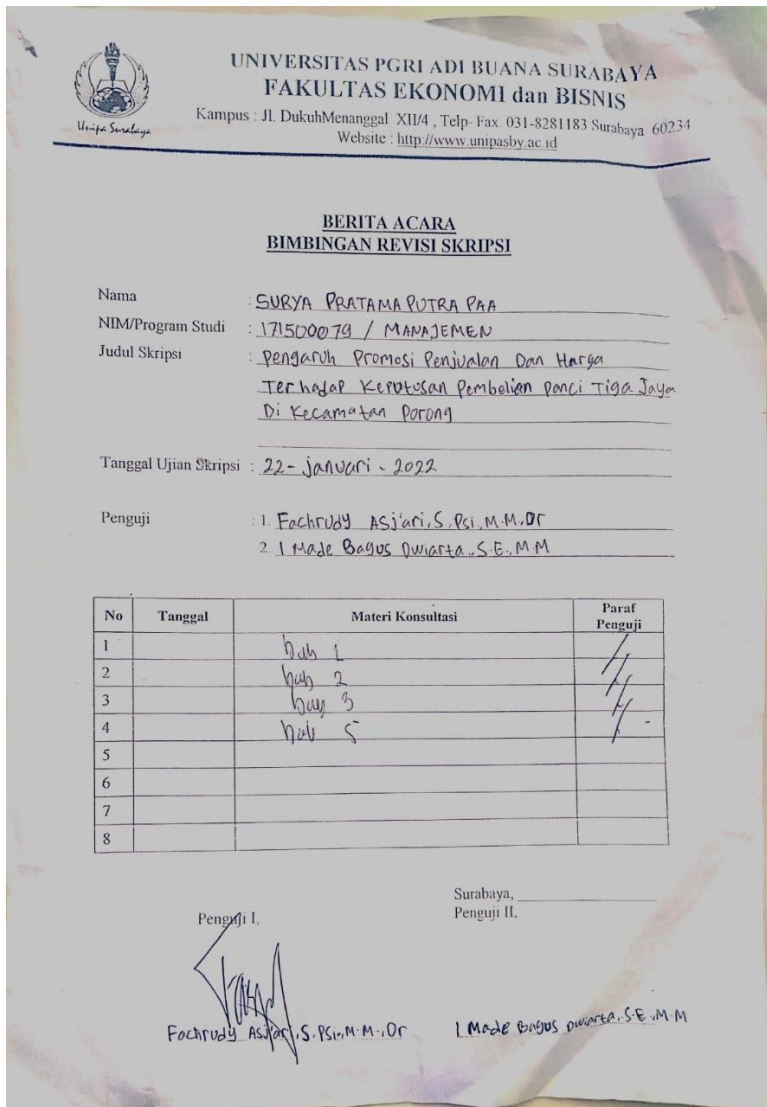 UNIVERSITAS PGRI ADI BUANA SURABAYA
FAKULTAS EKONOMI dan BISNIS
Kampus : Jl. DukuhMenanggal XII/4 , Telp- Fax. 031-8281183 Surabaya 60234
Website : http://www.unipasby.ac.id
Unipa Surabaya
BERITA ACARA
BIMBINGAN REVISI SKRIPSI
Nama : SURYA PRATAMA PUTRA PAA
NIM/Program Studi : 171500079 / MANAJEMEN
Judul Skripsi : Pengaruh Promosi Penjualan Dan Harga
Terhadap Keputusan Pembelian Panci Tiga Jaya
Di Kecamatan Porong
Tanggal Ujian Skripsi : 22 - januari - 2022
Penguji : 1. Fachrudy Asj'ari, S.Psi., M.M., Dr
2. I Made Bagus Dwiarta., S.E., M.M
No Tanggal Materi Konsultasi Paraf Penguji
1 bab 1
2 bab 2
3 bab 3
4 bab 5
5
6
7
8
Surabaya,
Penguji I, Penguji II,
Fachrudy Asj'ari, S.PSi., M.M., Dr I Made Bagus Dwiarta, S.E., M.M